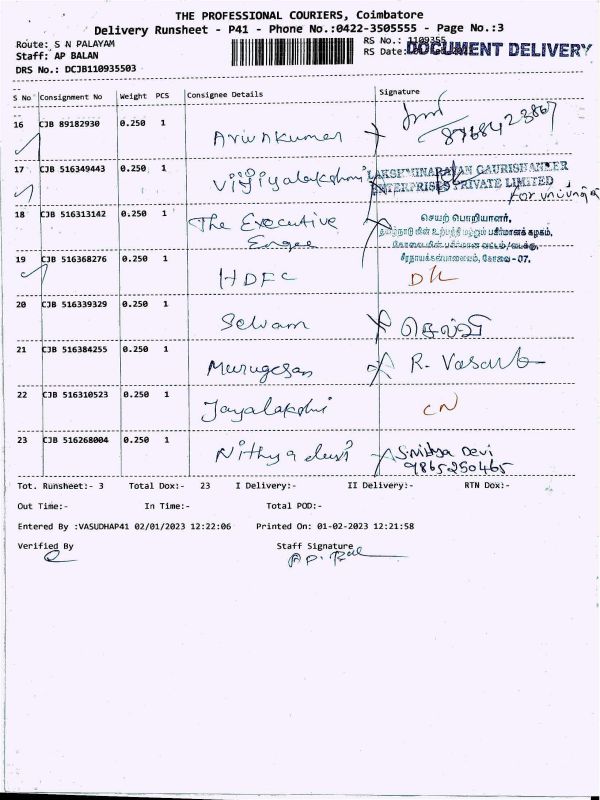 THE PROFESSIONAL COURIERS, Coimbatore
Delivery Runsheet - P41 - Phone No.:0422-3505555 - Page No.:3
Route: S N PALAYAM
RS No.: 1109355
DOCUMENT DELIVERY
Staff: AP BALAN
RS Date:
DRS No.: DCJB110935503
S No Consignment No Weight PCS Consignee Details Signature
16 CJB 89182930 0.250 1 Arivukumar
17 CJB 516349443 0.250 1 LAKSHMINARAYAN GAURISHANKER
ENTERPRISES PRIVATE LIMITED
18 CJB 516313142 0.250 1 The Executive Engee செயற் பொறியாளர்,
தமிழ்நாடு மின் உற்பத்தி மற்றும் பகிர்மானக் கழகம்,
சீரநாயக்கன்பாளையம், கோவை - 07.
19 CJB 516368276 0.250 1 HDFC
20 CJB 516339329 0.250 1 Selvam செல்வி
21 CJB 516384255 0.250 1 Murugesan R. Vasanth
22 CJB 516310523 0.250 1 CN
23 CJB 516268004 0.250 1 Nithya devi
9865250465
Tot. Runsheet:- 3 Total Dox:- 23 I Delivery:- II Delivery:- RTN Dox:-
Out Time:- In Time:- Total POD:-
Entered By :VASUDHAP41 02/01/2023 12:22:06 Printed On: 01-02-2023 12:21:58
Verified By Staff Signature